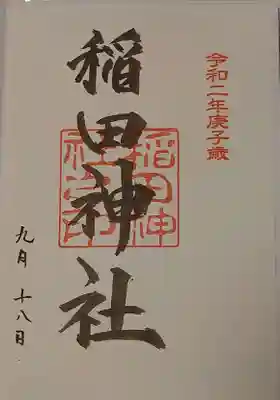 令和二年庚子歳
稲田神社
稲田神
社之印
九月 十八日